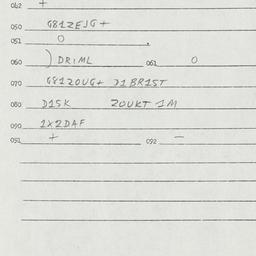 062 +
050 G81ZEJG+
051 O .
060 ) DRIML 061 O
070 G81ZOUG+ D1BR1ST
080 D1SK ZOUKT 1M
090 1X2DAF
091 + 092 -